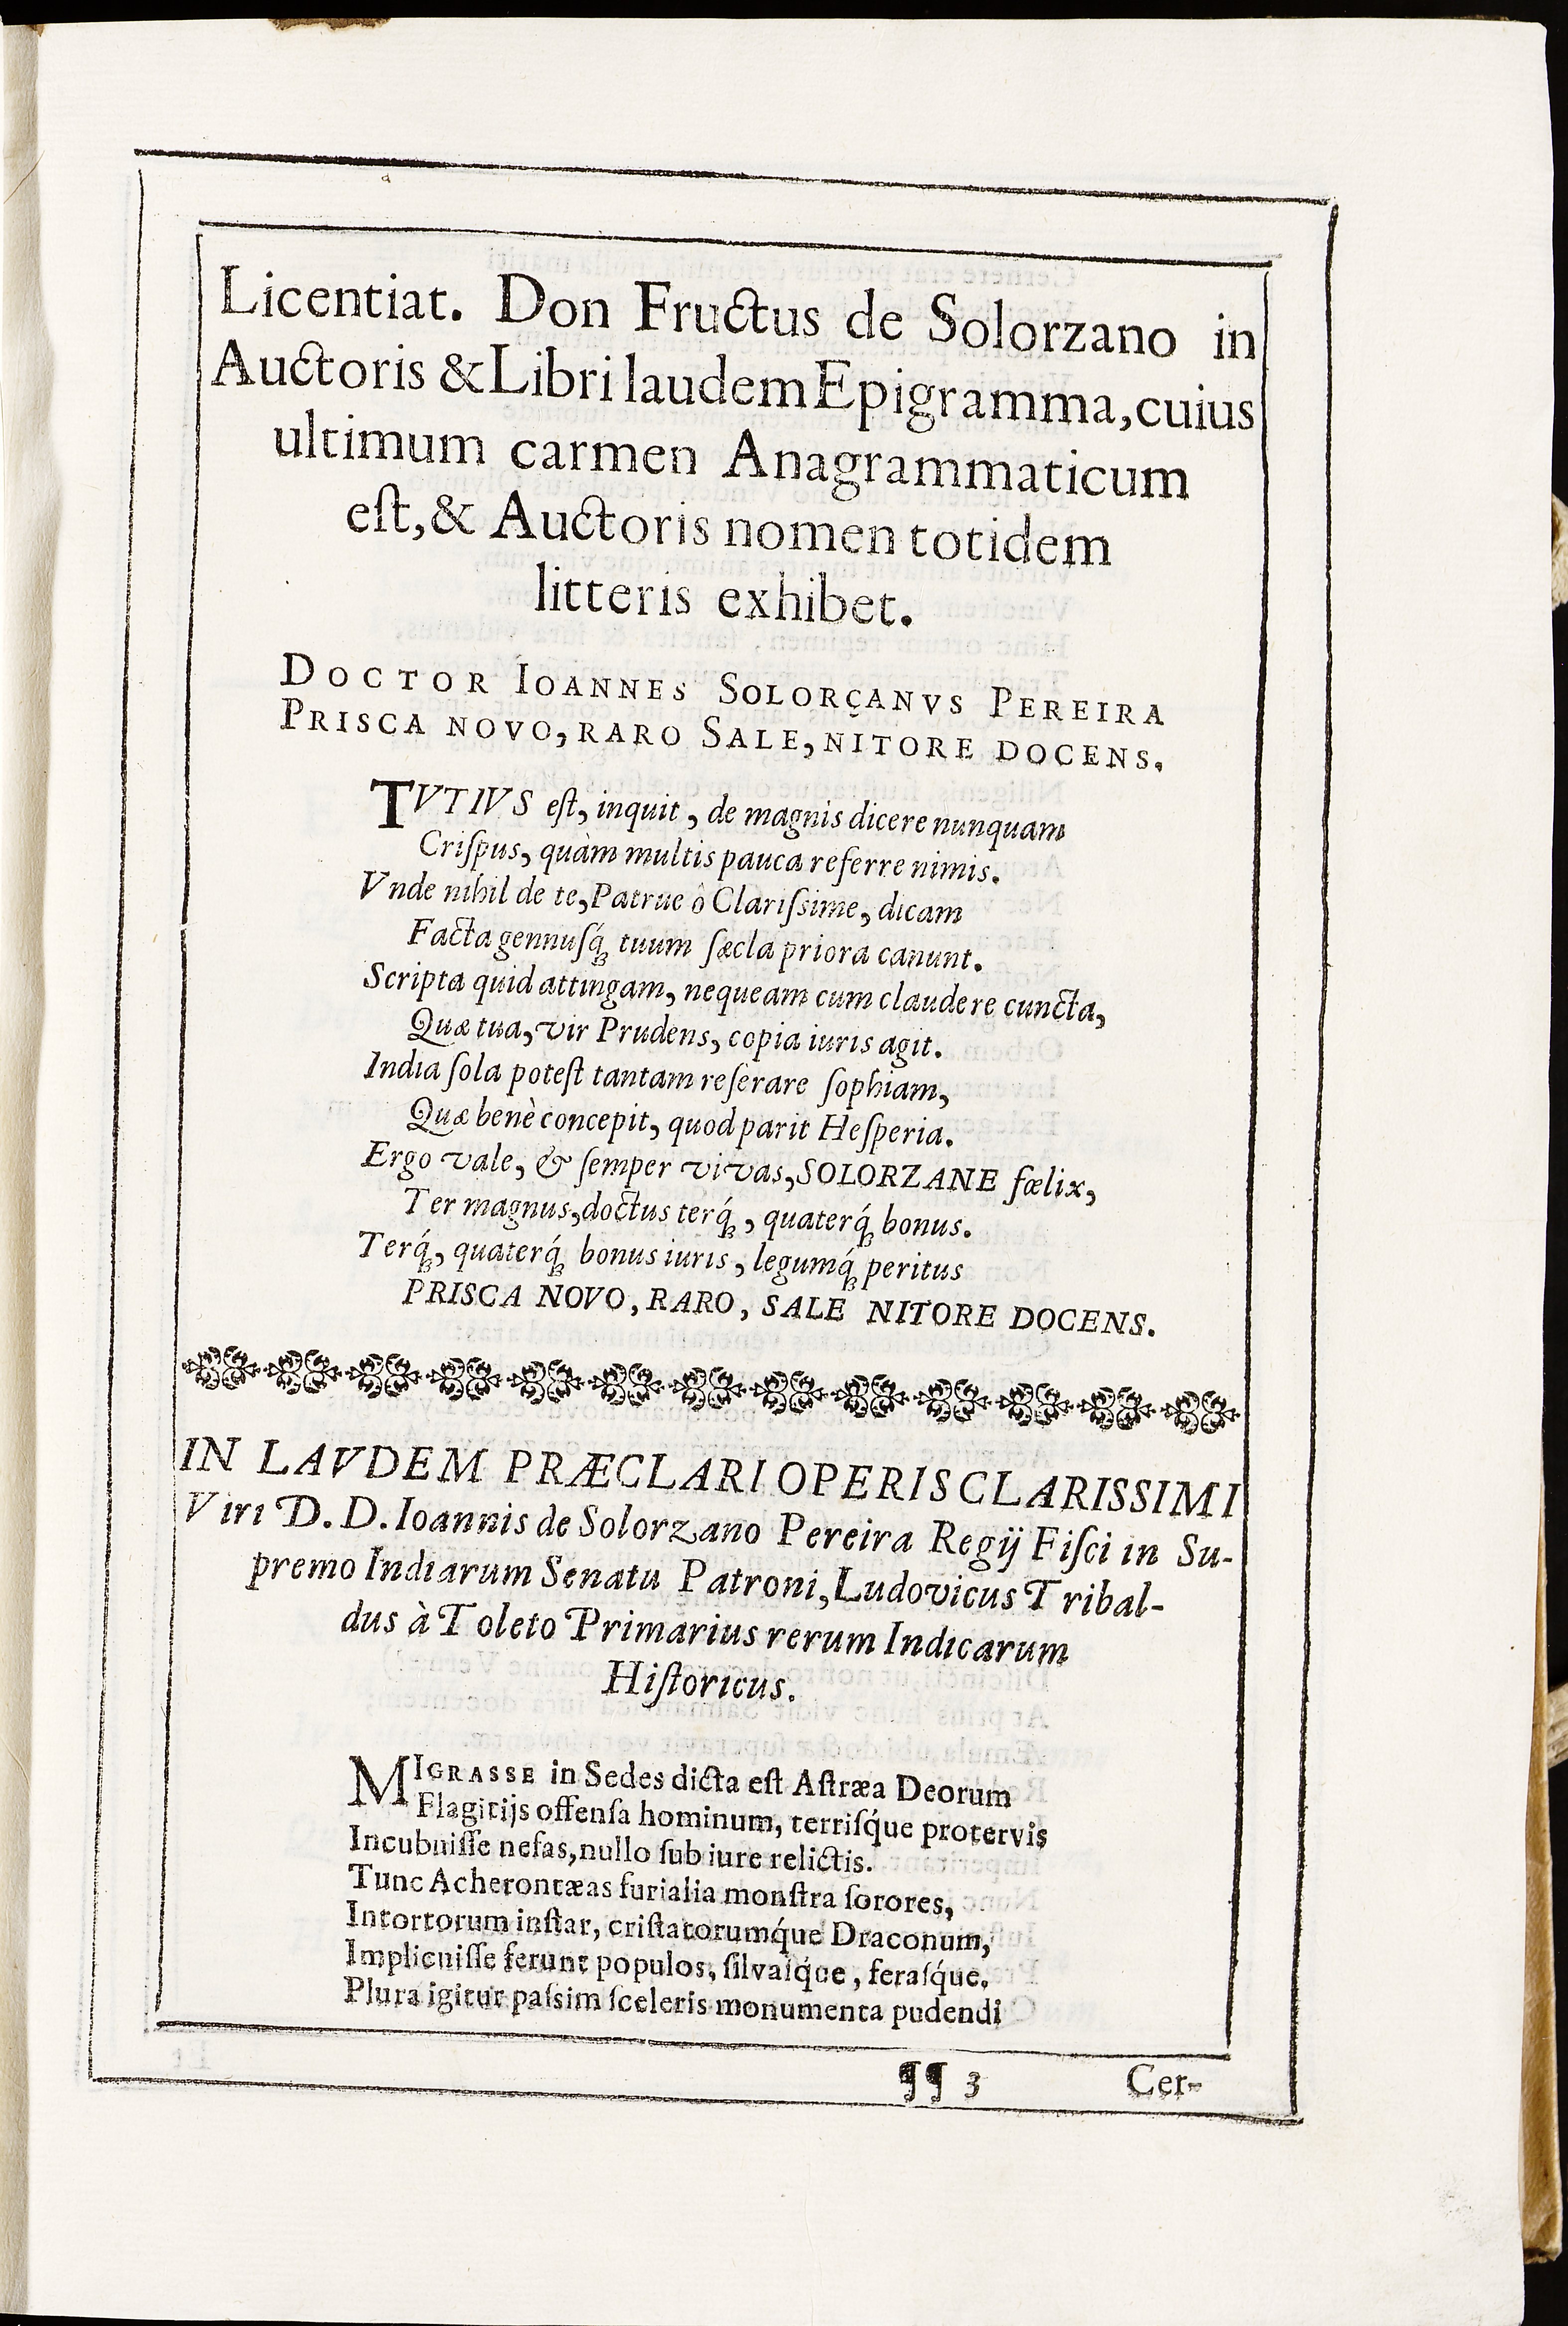 Licentiat. Don Fructus de Solorzano in
Auctoris & Libri laudem Epigramma, cuius
ultimum carmen Anagrammaticum
eſt, & Auctoris nomen totidem
litteris exhibet.
DOCTOR IOANNES SOLORÇANVS PEREIRA
PRISCA NOVO, RARO SALE, NITORE DOCENS.
TVTIVS eſt, inquit, de magnis dicere nunquam
Criſpus, quàm multis pauca referre nimis.
Vnde nihil de te, Patrue ô Clariſsime, dicam
Facta gennuſq́ꝫ tuum ſæcla priora canunt.
Scripta quid attingam, nequeam cum claudere cuncta,
Quæ tua, vir Prudens, copia iuris agit.
India ſola poteſt tantam reſerare ſophiam,
Quæ benè concepit, quod parit Heſperia.
Ergo vale, & ſemper vivas, SOLORZANE fœlix,
Ter magnus, doctus terq́ꝫ, quaterq́ꝫ bonus.
Terq́ꝫ, quaterq́ꝫ bonus iuris, legumq́ꝫ peritus
PRISCA NOVO, RARO, SALE NITORE DOCENS.
IN LAVDEM PRÆCLARI OPERIS CLARISSIMI
Viri D. D. Ioannis de Solorzano Pereira Regij Fiſci in Su-
premo Indiarum Senatu Patroni, Ludovicus Tribal-
dus à Toleto Primarius rerum Indicarum
Hiſtoricus.
MIGRASSE in Sedes dicta eſt Aſtræa Deorum
Flagitijs offenſa hominum, terriſq́ue protervis
Incubuiſſe nefas, nullo ſub iure relictis.
Tunc Acherontæas furialia monſtra ſorores,
Intortorum inſtar, criſtatorumq́ue Draconum,
Implicuiſſe ferunt populos, ſilvaſq́ue, feraſq́ue.
Plura igitur paſsim ſceleris monumenta pudendi
¶¶ 3 Cer-